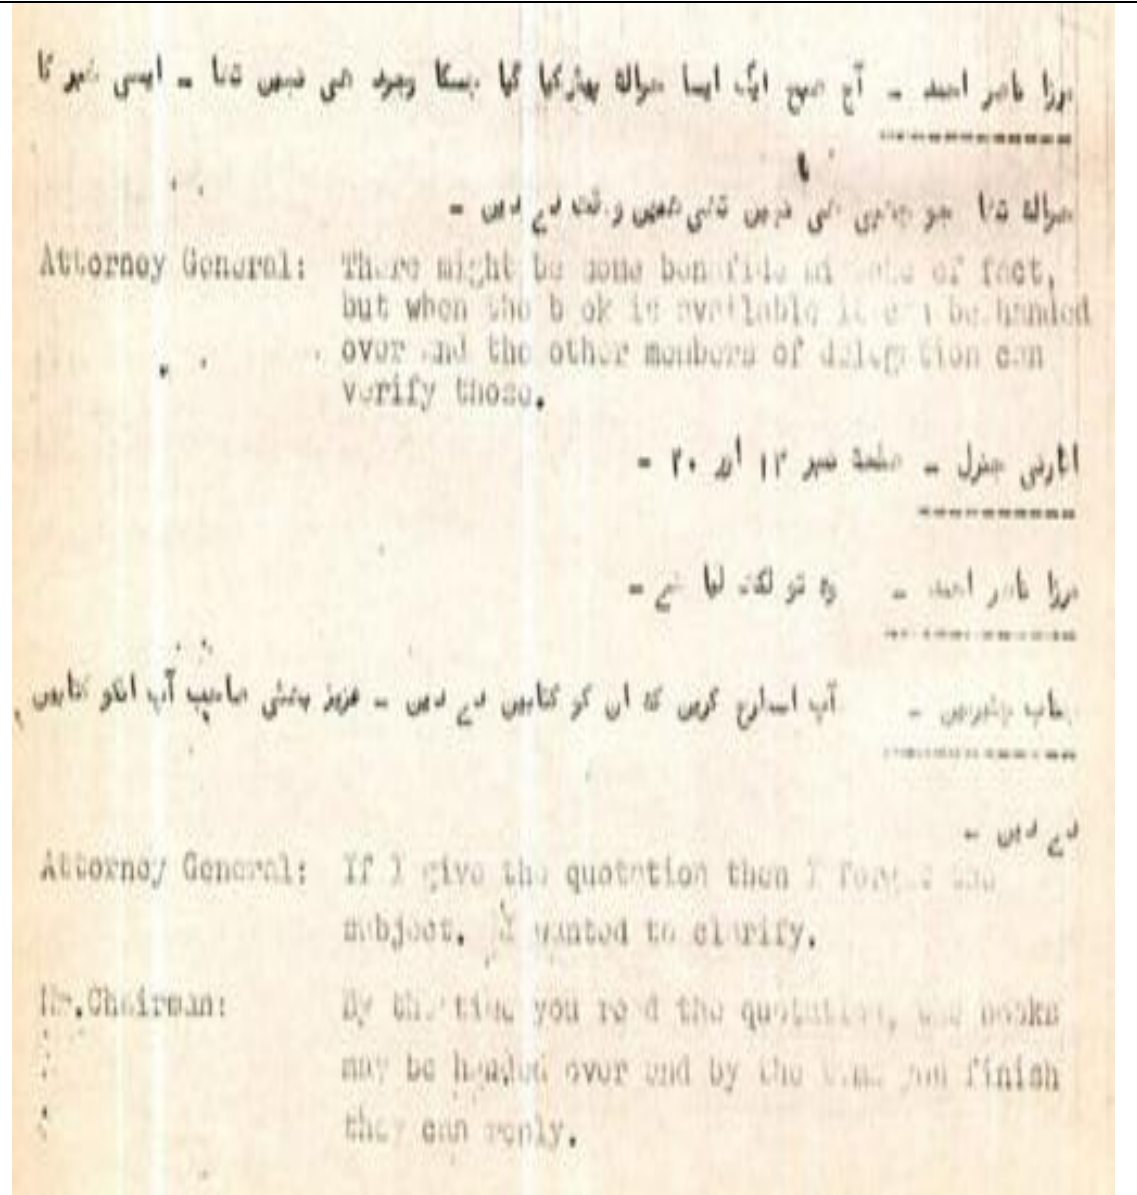 مرزا ناصر احمد - آج صبح ایک ایسا حوالہ پیش کیا گیا جسکا وجود ہی نہیں تھا - ایسی خبر کا
حوالہ تھا جو چھپی ہی نہیں تھی ہمیں وقت دے دیں -
Attorney General: There might be some bonafide mistake of fact,
but when the book is available it can be handed
over and the other members of delegation can
verify those.
اٹارنی جنرل - صفحہ نمبر ۱۲ اور ۲۰ -
مرزا ناصر احمد - وہ تو لکھ لیا ہے -
جناب چئیرمین - آپ اسطرح کریں کہ ان کو کتابیں دے دیں - عزیز بھٹی صاحب آپ انکو کتابیں
دے دیں -
Attorney General: If I give the quotation then I forget the
subject. I wanted to clarify.
Mr.Chairman: By the time you read the quotation, the books
may be handed over and by the time you finish
they can reply.